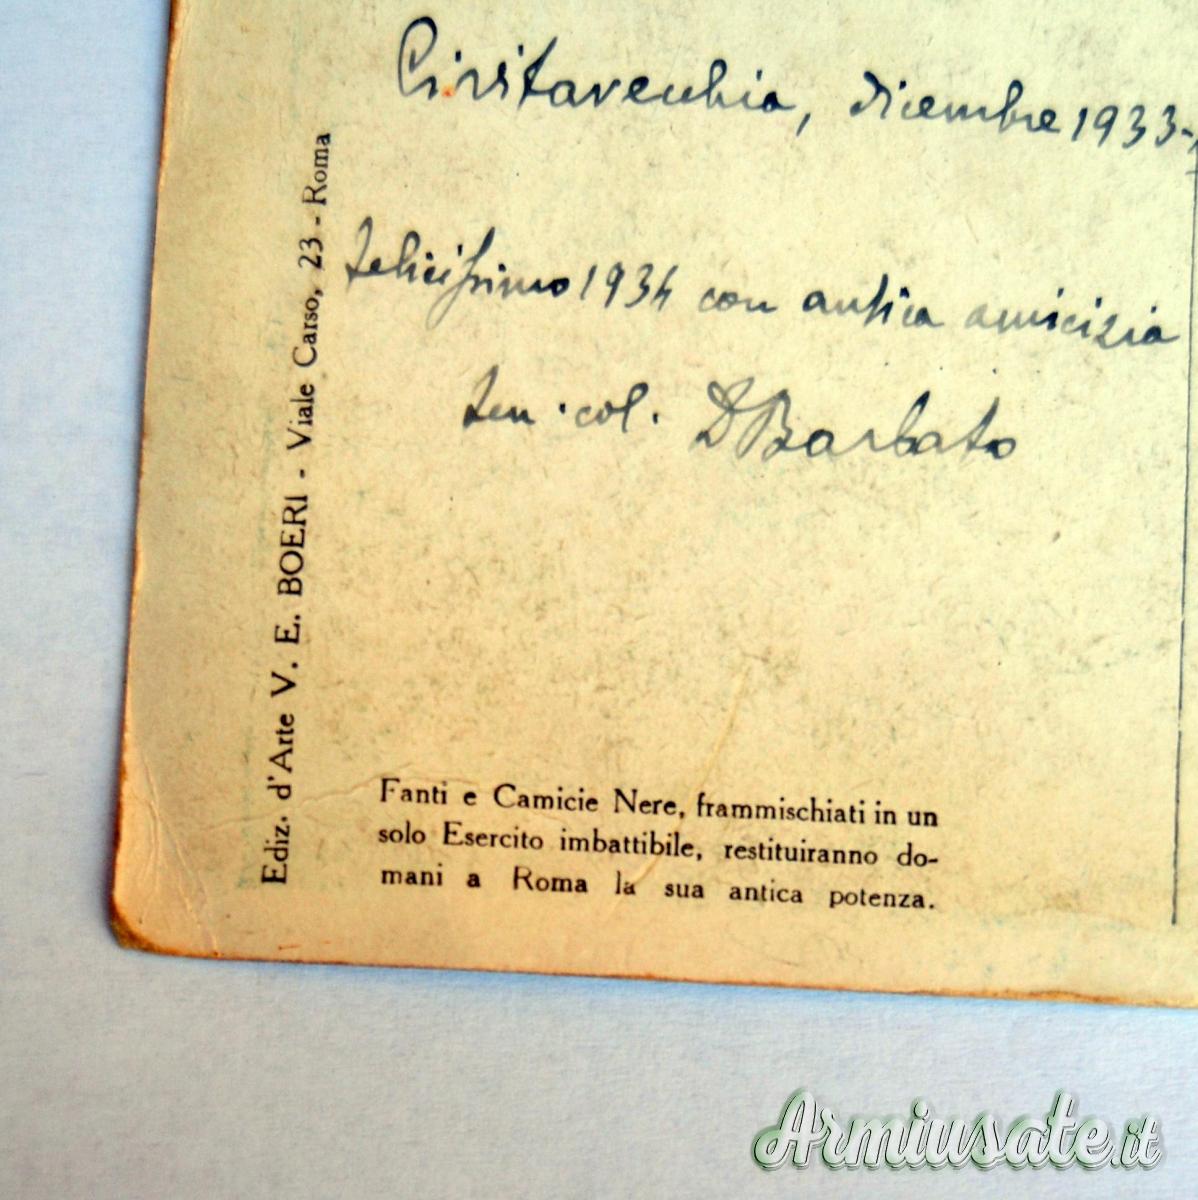 Civitavecchia, dicembre 1933-
felicissimo 1934 con antica amicizia
ten. col. D Barbato
Ediz. d'Arte V. E. BOERI - Viale Carso, 23 - Roma
Fanti e Camicie Nere, frammischiati in un
solo Esercito imbattibile, restituiranno do-
mani a Roma la sua antica potenza.
Armiusate.it